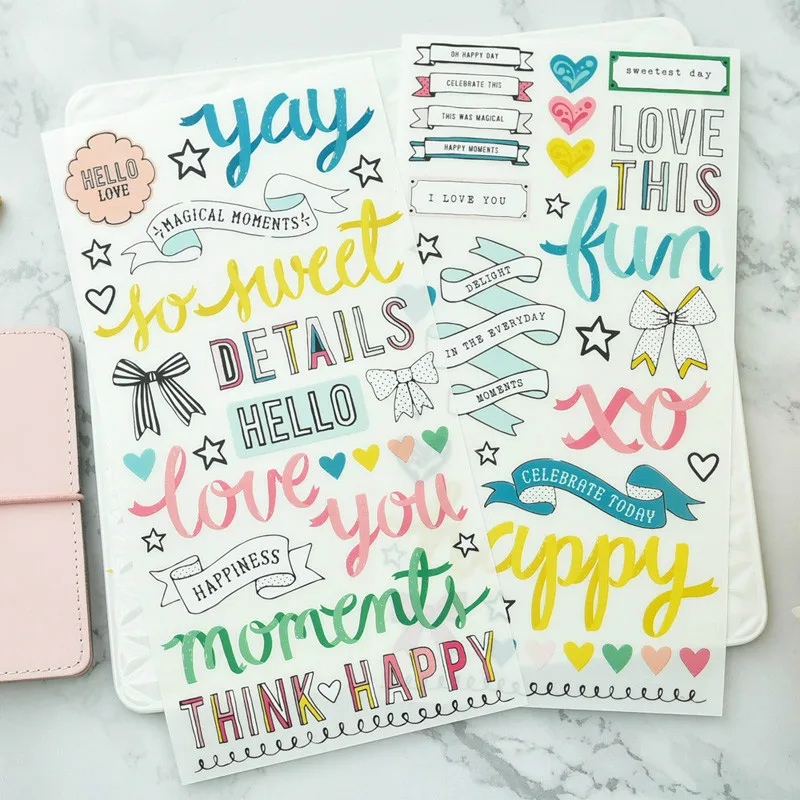 yay
HELLO
LOVE
MAGICAL MOMENTS
so sweet
DETAILS
HELLO
love
you
HAPPINESS
moments
THINK HAPPY
OH HAPPY DAY
CELEBRATE THIS
THIS WAS MAGICAL
HAPPY MOMENTS
I LOVE YOU
sweetest day
LOVE
THIS
fun
DELIGHT
IN THE EVERYDAY
MOMENTS
xo
CELEBRATE TODAY
appy